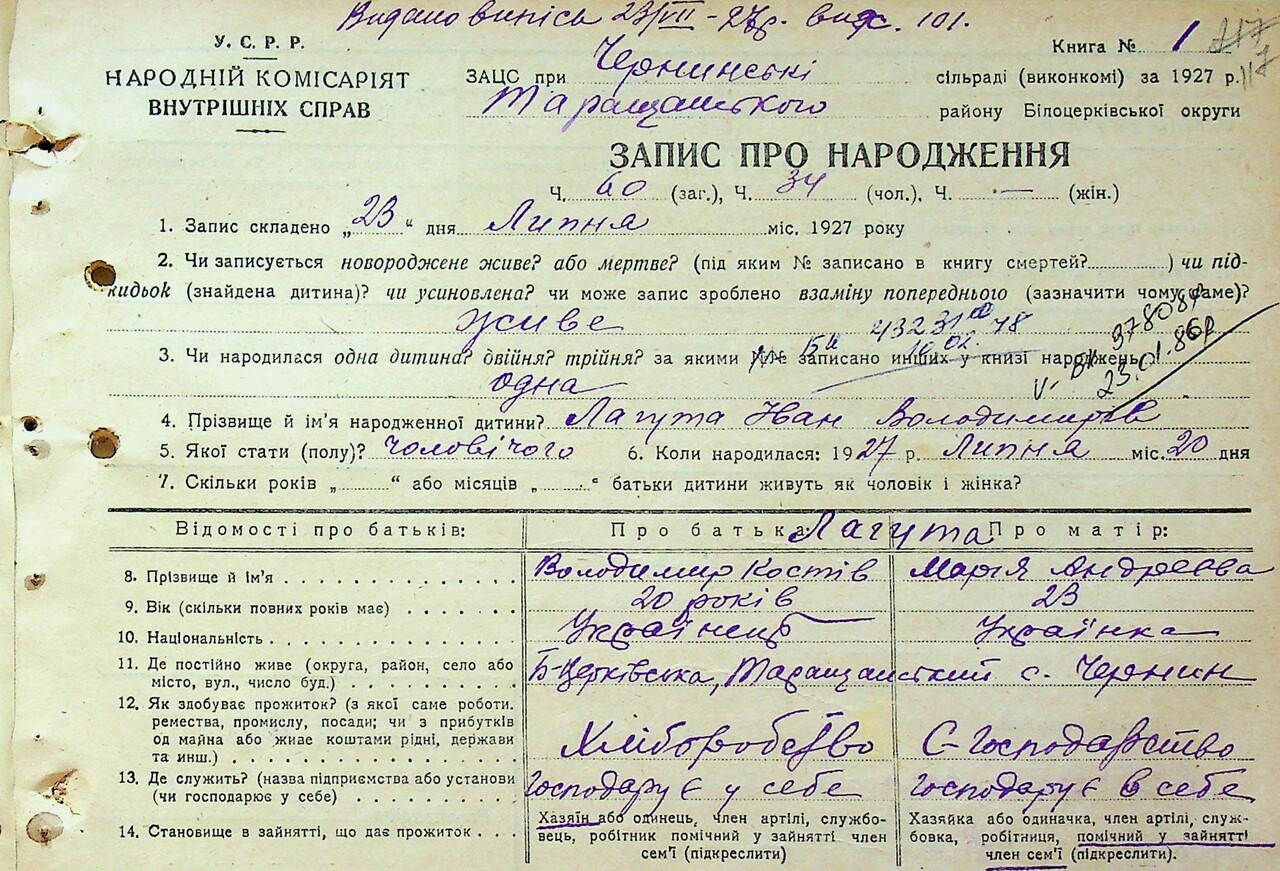 Видано випись 23/VII - 27р. вих. 101.
У. С. Р. Р.
НАРОДНІЙ КОМІСАРІЯТ
ВНУТРІШНІХ СПРАВ
Книга № 1 717
117
ЗАЦС при Чернинські сільраді (виконкомі) за 1927 р.
Таращанського району Білоцерківської округи
ЗАПИС ПРО НАРОДЖЕННЯ
Ч. 60 (заг.), Ч. 34 (чол.), Ч. — (жін.)
1. Запис складено „23“ дня Липня міс. 1927 року
2. Чи записується новороджене живе? або мертве? (під яким № записано в книгу смертей?..........) чи під-
кидьок (знайдена дитина)? чи усиновлена? чи може запис зроблено взаміну попереднього (зазначити чому саме)?
живе
3. Чи народилася одна дитина? двійня? трійня? за якими №№ записано инших у книзі народжень
одна
23.01.86р
4. Прізвище й ім'я народженної дитини? Лагута Иван Володимирів
5. Якої стати (полу)? чоловічого 6. Коли народилася: 1927 р. Липня міс. 20 дня
7. Скільки років „.........“ або місяців „.........“ батьки дитини живуть як чоловік і жінка?
Відомості про батьків: Про батька: Лагута Про матір:
8. Прізвище й ім'я Володимир Костів Марія Андреєва
9. Вік (скільки повних років має) 20 років 23
10. Національність Українець Українка
11. Де постійно живе (округа, район, село або
місто, вул., число буд.) Б-Церківська, Таращанський с. Чернин
12. Як здобуває прожиток? (з якої саме роботи.
ремества, промислу, посади; чи з прибутків
од майна або живе коштами рідні, держави
та инш.) Хліборобство С-Господарство
13. Де служить? (назва підприємства або установи
(чи господарює у себе) Господарує у себе Господарує в себе
14. Становище в зайнятті, що дає прожиток
Хазяїн або одинець, член артілі, службо-
вець, робітник помічний у зайнятті член
сем'ї (підкреслити)
Хазяйка або одиначка, член артілі, служ-
бовка, робітниця, помічний у зайнятті
член сем'ї (підкреслити).